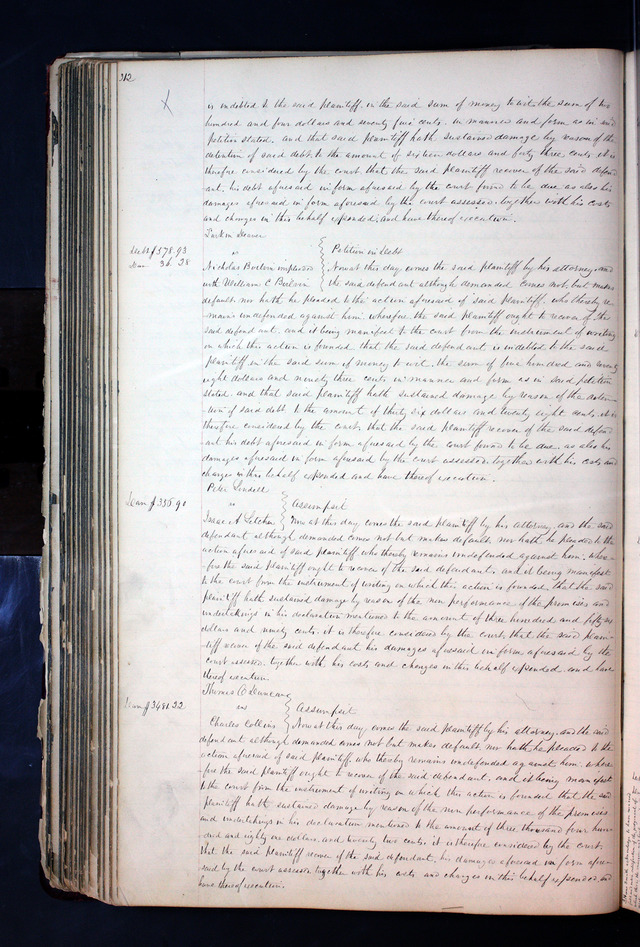 212
is indebted to the said plaintiff in the said sum of money to wit, the sum of two
hundred and four dollars and seventy five cents. in manner and form as in said
petition stated. and that said plaintiff hath sustained damage by reason of the
detention of said debt to the amount of sixteen dollars and forty three cents. it is
therefore considered by the court that the said plaintiff recover of the said defend
ant. his debt aforesaid in form aforesaid by the court found to be due, as also his
damages aforesaid in form aforesaid by the court assessed. together with his costs
and charges in this behalf expended, and have thereof execution.
Debt $578.93
Dam 36.28
vs
Petition in Debt
Nicholas impleaded Now at this day, comes the said plaintiff by his attorney, and
with William C the said defendant although demanded comes not, but makes
default. nor hath he pleaded to the action aforesaid of said plaintiff. who thereby re
mains undefended against him. wherefore the said plaintiff ought to recover of the
said defendant. and it being manifest to the court from the instrument of writing
on which this action is founded that the said defendant is indebted to the said
plaintiff in the said sum of money to wit. the sum of five hundred and seventy
eight dollars and ninety three cents in manner and form as in said petition
stated. and that said plaintiff hath sustained damage by reason of the deten
tion of said debt to the amount of thirty six dollars and twenty eight cents. it is
therefore considered by the court that the said plaintiff recover of the said defend
ant his debt aforesaid in form aforesaid by the court found to be due. as also his
damages aforesaid in form aforesaid by the court assessed. together with his costs and
charges in this behalf expended and have thereof execution.
Peter Lindell
Dam $356.90
vs
Assumpsit
Isaac A Letcher Now at this day, comes the said plaintiff by his attorney. and the said
defendant although demanded comes not but makes default, nor hath he pleaded to the
action aforesaid of said plaintiff who thereby remains undefended against him. where
fore the said plaintiff ought to recover of the said defendant. and it being manifest
to the court from the instrument of writing on which this action is founded, that the said
plaintiff hath sustained damage by reason of the non performance of the promises and
undertakings in his declaration mentioned to the amount of three hundred and fifty six
dollars and ninety cents. it is therefore considered by the court, that the said plain
tiff recover of the said defendant his damages aforesaid in form aforesaid by the
court assessed. together with his costs and charges in this behalf expended. and have
thereof execution
Thomas O Duncan
Dam $3481.22
vs
Assumpsit
Charles Collins Now at this day, comes the said plaintiff by his attorney. and the said
defendant although demanded comes not but makes default nor hath he pleaded to the
action aforesaid of said plaintiff. who thereby remains undefended against him. where
fore the said plaintiff ought to recover of the said defendant. and it being manifest
to the court from the instrument of writing on which this action is founded that the said
plaintiff hath sustained damage by reason of the non performance of the promises
and undertakings in his declaration mentioned to the amount of three thousand four hun
dred and eighty one dollars. and twenty two cents it is therefore considered by the court
that the said plaintiff recover of the said defendant, his damages aforesaid in form afore
said by the court assessed together with his costs and charges in this behalf expended, and
have thereof execution.